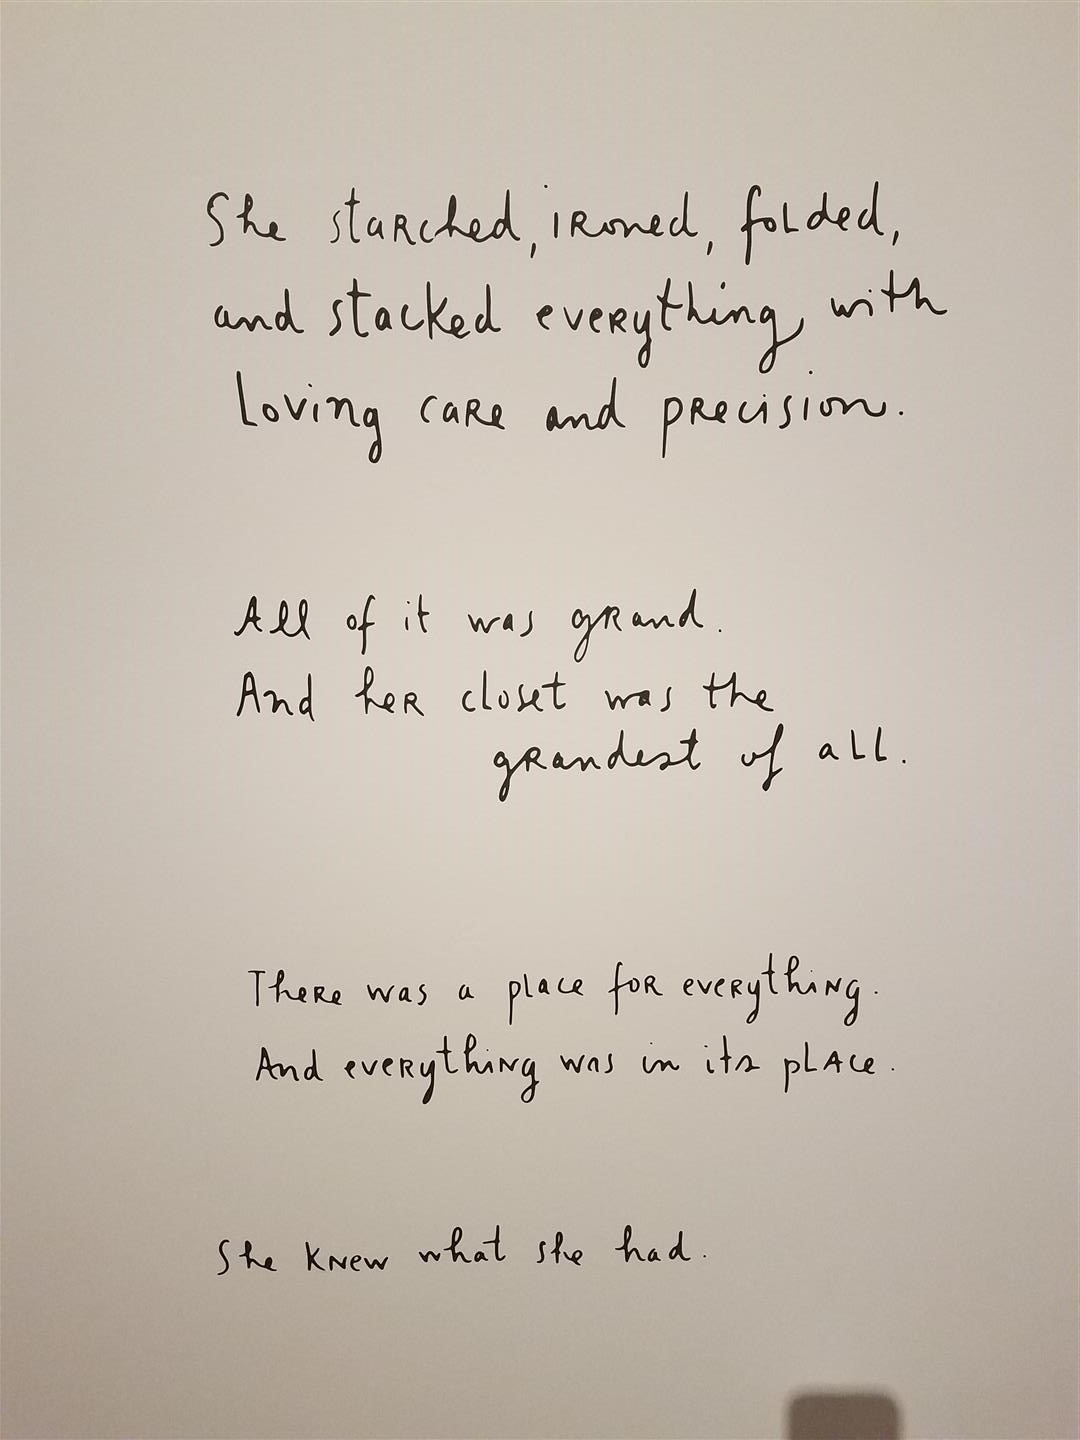 She starched, ironed, folded,
and stacked everything, with
loving care and precision.
All of it was grand.
And her closet was the
grandest of all.
There was a place for everything.
And everything was in its place.
She knew what she had.